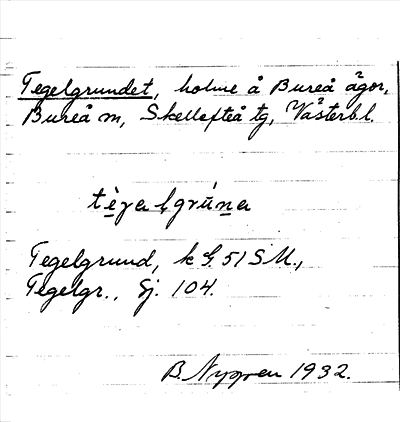 Tegelgrundet, holme å Bureå ägor,
Bureå sn, Skellefteå tg, Västerbl.
Tegelgrund, k G. 51 S M.,
Tegelgr., Sj. 104.
B. Nygren 1932.